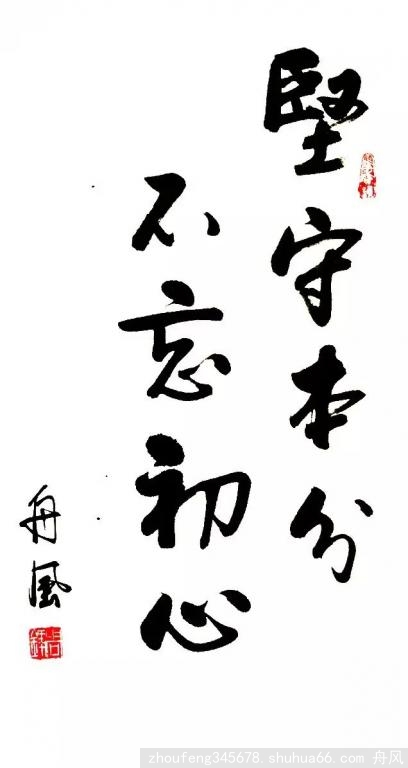 堅守本分
不忘初心
舟風
zhoufeng345678.shuhua66.com 舟风